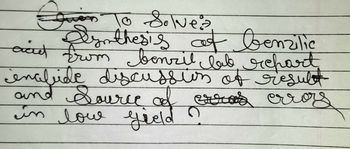 To Solve:
Synthesis of benzilic
acid from benzil lab report
include discussion of result
and Source of error
in low yield ?